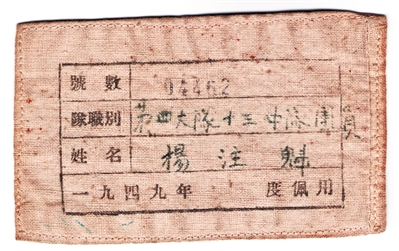 號數 04462
隊職別 第四大隊十三中隊團員
姓名 楊注魁
一九四九年 度佩用